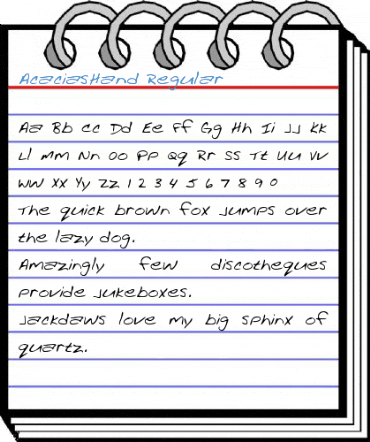 AcaciasHand Regular
Aa Bb Cc Dd Ee Ff Gg Hh Ii Jj Kk
Ll Mm Nn Oo Pp Qq Rr Ss Tt Uu Vv
Ww Xx Yy Zz 1 2 3 4 5 6 7 8 9 0
The quick brown fox jumps over
the lazy dog.
Amazingly few discotheques
provide jukeboxes.
Jackdaws love my big sphinx of
quartz.